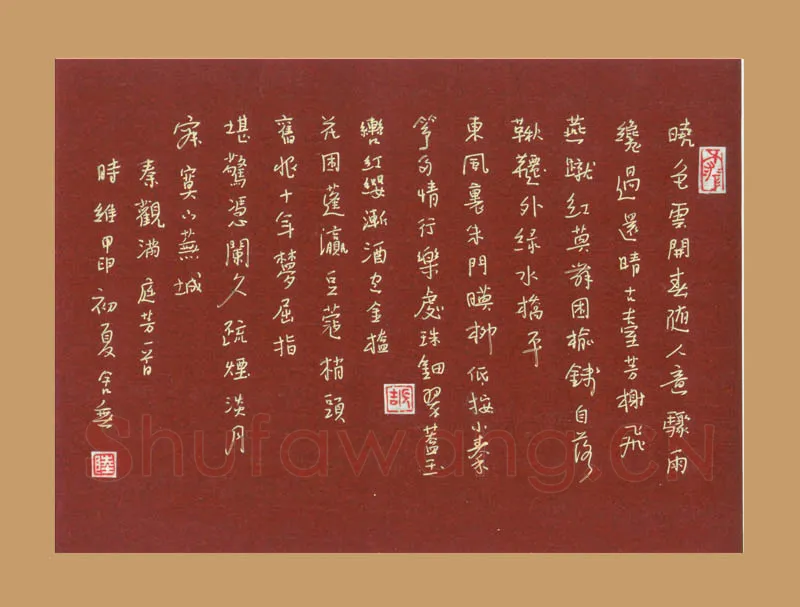 曉色雲開春隨人意驟雨
纔過還晴古臺芳榭飛
燕蹴紅英舞困榆錢自落
鞦韆外綠水橋平
東風裏朱門映柳低按小秦
箏多情行樂處珠鈿翠蓋玉
轡紅纓漸酒空金榼
花困蓬瀛豆蔻梢頭
舊恨十年夢屈指
堪驚憑闌久疏煙淡月
寂寞下蕪城
秦觀滿庭芳一首
時維甲申初夏
Shufawang.CN